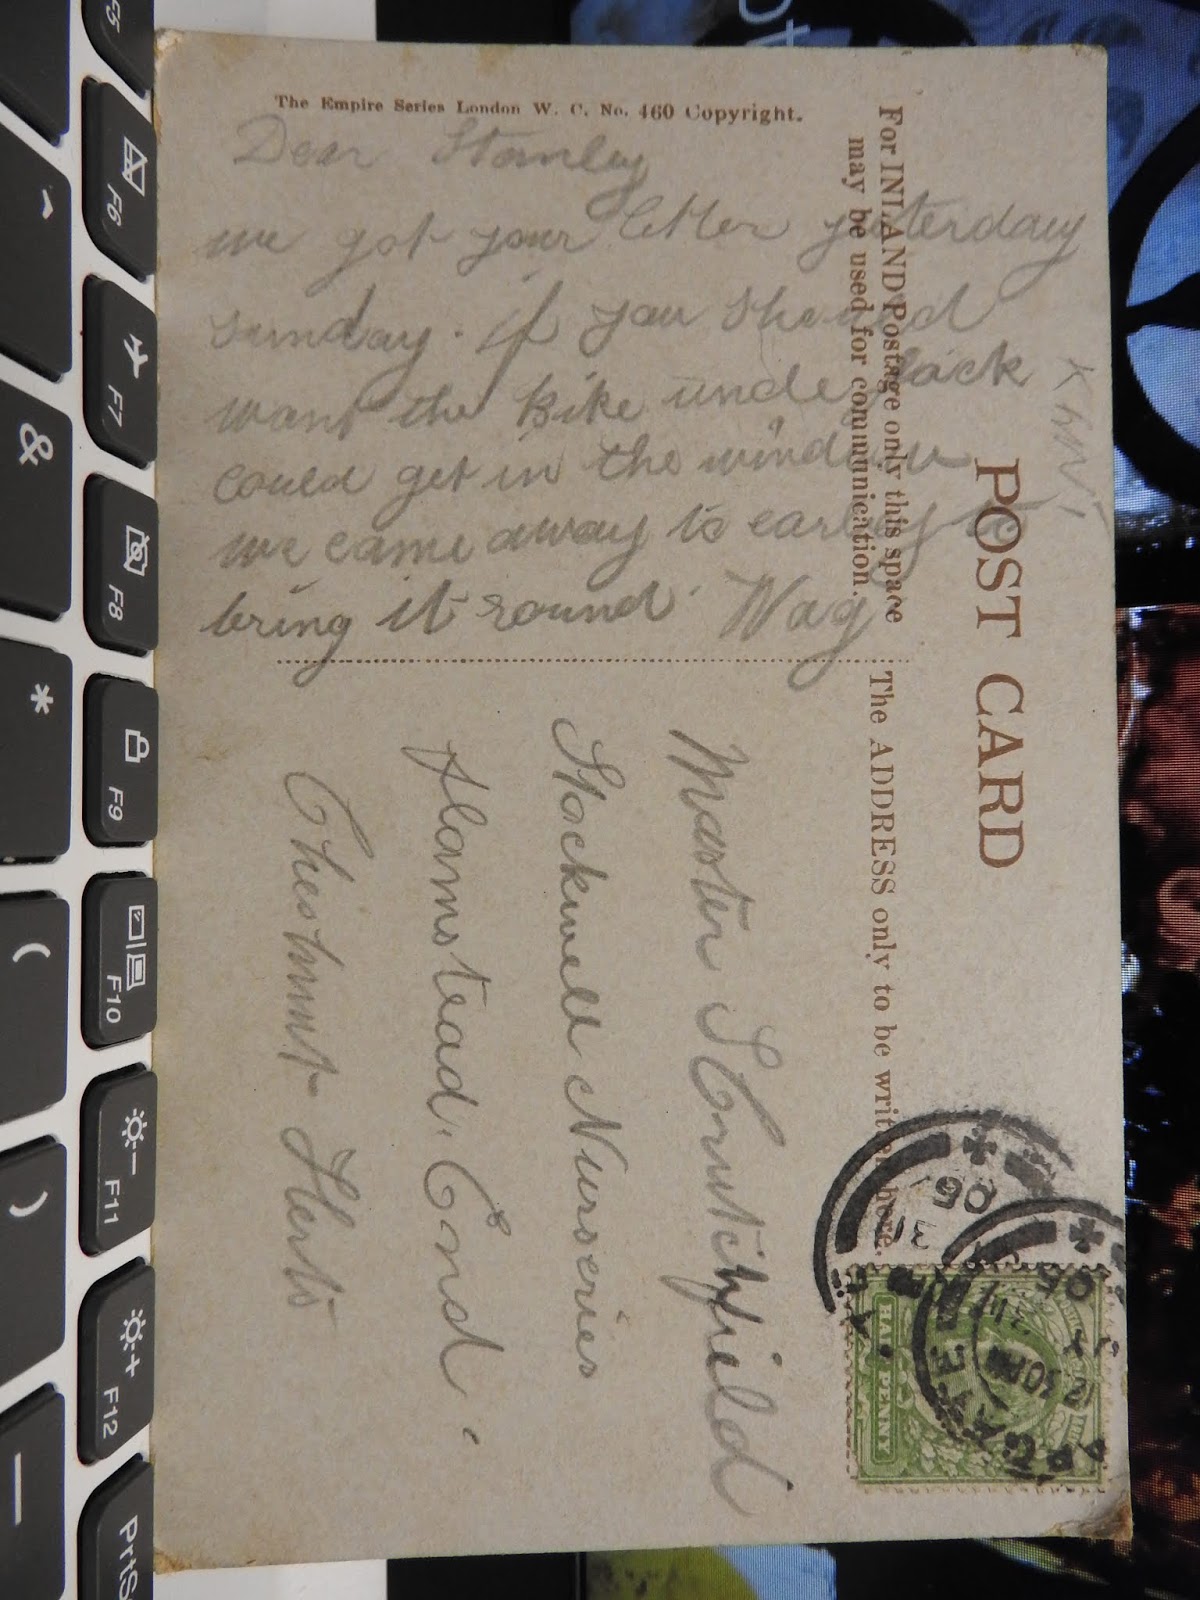 The Empire Series London W. C. No. 460 Copyright.
Dear Stanley
we got your letter yesterday
sunday. if you should
want the bike uncle Jack
could get in the window
we came away to early to
bring it round. Wag
For INLAND Postage only this space
may be used for communication.
POST CARD
The ADDRESS only to be written here.
Master S Crutchfield
Stockwell Nurseries
flamstead. End.
Cheshunt Herts
HALF PENNY
05
12 30 PM
05
F5
F6
F7
F8
F9
F10
F11
F12
PrtS
^
&
*
(
)